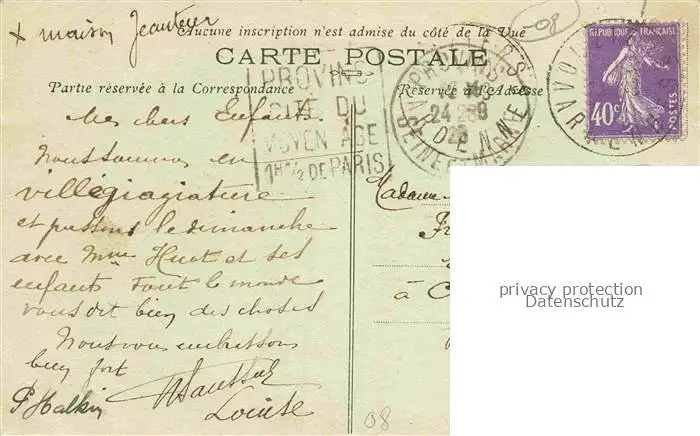 x maison Jeanteur
Aucune inscription n'est admise du côté de la Vue
08
CARTE POSTALE
Partie réservée à la Correspondance
Réservée à l'Adresse
PROVINS
CITÉ DU
MOYEN AGE
1H 1/2 DE PARIS
PROVINS
24
SEINE ET MARNE
RÉPUBLIQUE FRANÇAISE
40c
POSTES
Mes chers Enfants
Nous sommes en
villégiagiature
et passons le dimanche
avec Mme Huot et ses
enfants Tout le monde
vous dit bien des choses
Nous vous embrassons
bien fort
Louise
P Halkin
08
Madame
à C
privacy protection
Datenschutz